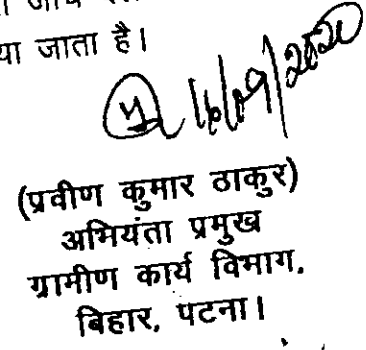 जाता है।
16/09/2020
(प्रवीण कुमार ठाकुर)
अभियंता प्रमुख
ग्रामीण कार्य विभाग,
बिहार, पटना।